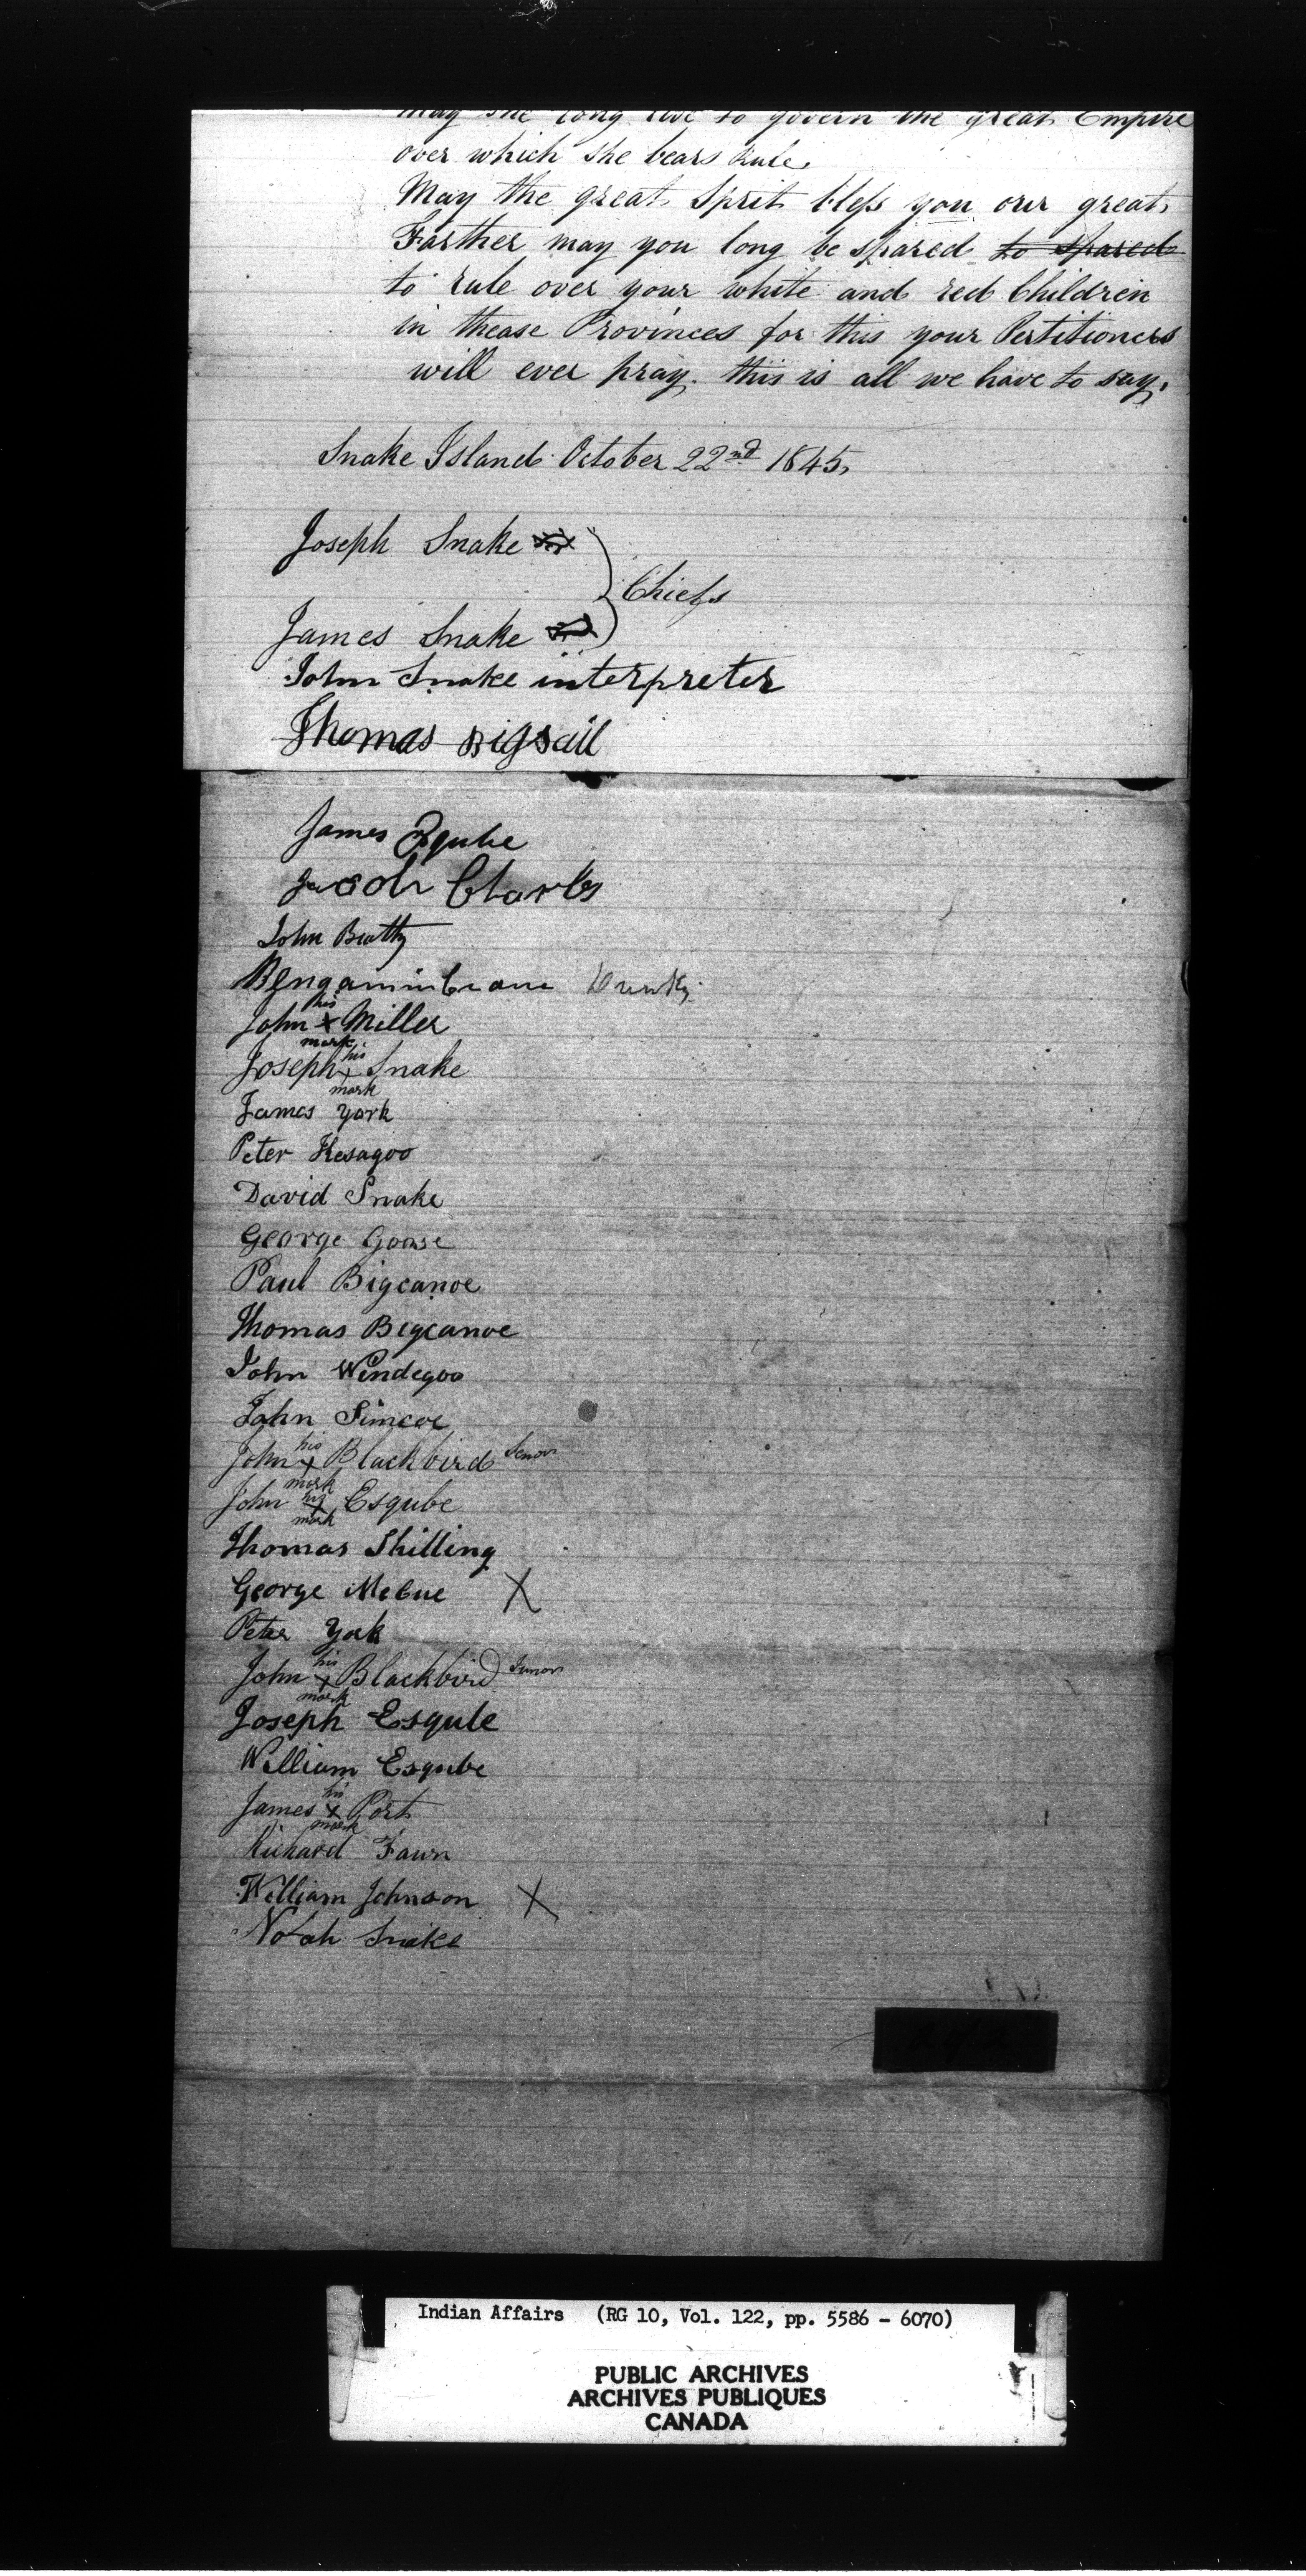 may she long live to govern the great Empire
over which she bears Rule.
May the great Sprit bless you our great
Farther may you long be spared to spared
to rule over your white and red Children
in thease Provinces for this your Pertitioners
will ever pray. this is all we have to say.
Snake Island October 22nd 1845.
Joseph Snake
Chiefs
James Snake
John Snake interpreter
Thomas Bigsail
James Esqube
Jacob Charles
John Beatty
Bengamin Crane
his
John x Miller
mark
his
Joseph x Snake
mark
James York
Peter Kesagoo
David Snake
George Goose
Paul Bigcanoe
Thomas Bigcanoe
John Windegoo
John Simcoe
his
John x Blackbird Senor
mark
his
John x Esqube
mark
Thomas Shilling
George McCue X
Peter York
his
John x Blackbird Junor
mark
Joseph Esqube
William Esqube
his
James x Port
mark
Richard Fawn
William Johnson X
Noah Snake
Indian Affairs (RG 10, Vol. 122, pp. 5586 - 6070)
PUBLIC ARCHIVES
ARCHIVES PUBLIQUES
CANADA